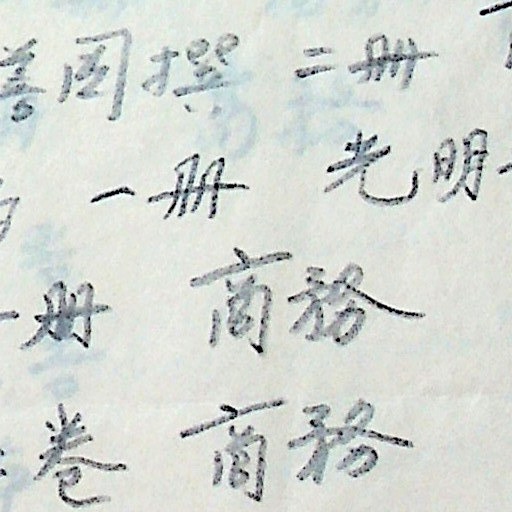 善国撰 二册
一册 光明
一册 商務
卷 商務